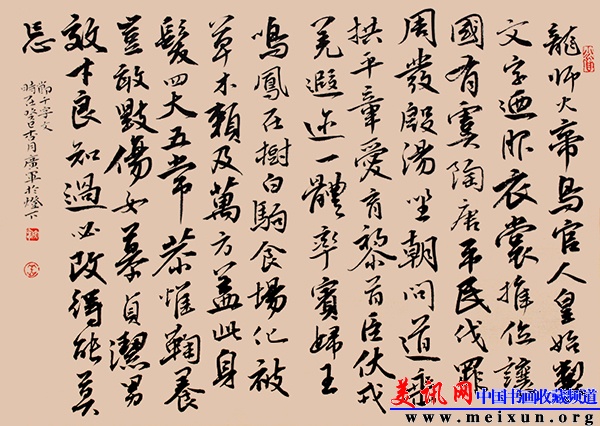 龍師火帝鳥官人皇始製
文字迺服衣裳推位讓
國有虞陶唐吊民伐罪
周發殷湯坐朝問道垂
拱平章愛育黎首臣伏戎
羌遐迩一體率賓歸王
鳴鳳在樹白駒食場化被
草木賴及萬方蓋此身
髮四大五常恭惟鞠養
豈敢毀傷女慕貞潔男
效才良知過必改得能莫
忘
節千字文
時在癸巳杏月廣軍於燈下
美讯网 中国书画收藏频道
www.meixun.org